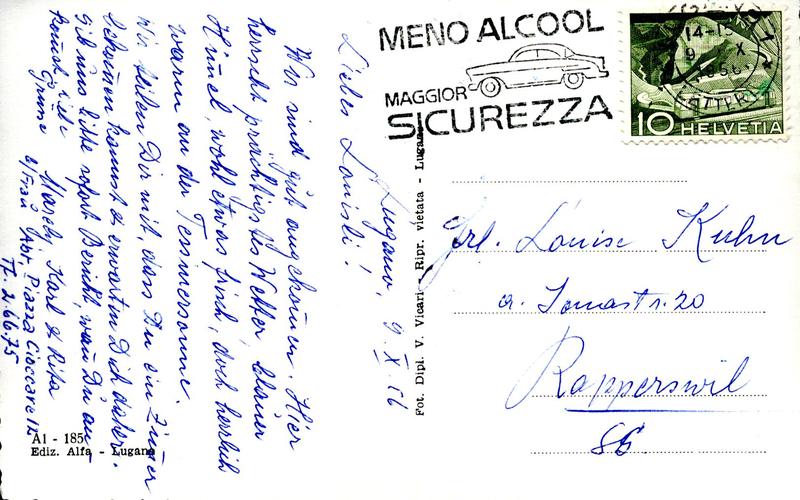 MENO ALCOOL
MAGGIOR
SICUREZZA
14-15
9. X
1956
10 HELVETIA
Lugano, 9. X 56
Liebes Louisli!
Wir sind gut angekommen. Hier
herrscht prächtigstes Wetter, blauer
Himmel, wohl etwas frisch, doch herrlich
warm an der Tessinersonne.
Wir teilen Dir mit, dass Du ein Zimmer
bekommen kannst & erwarten Dich daher.
Gib uns bitte sofort Bericht, wann Du an-
kommst. Liebe
Grüsse
Karl & Rita
Piazza Cioccaro 12
T. 2.66.75
Frl. Louise Kuhn
a. Jonastr. 20
Rapperswil
SG.
Fot. Dipl. V. Vicari - Ripr. vietata - Lugano
A1 - 185
Ediz. Alfa - Lugano